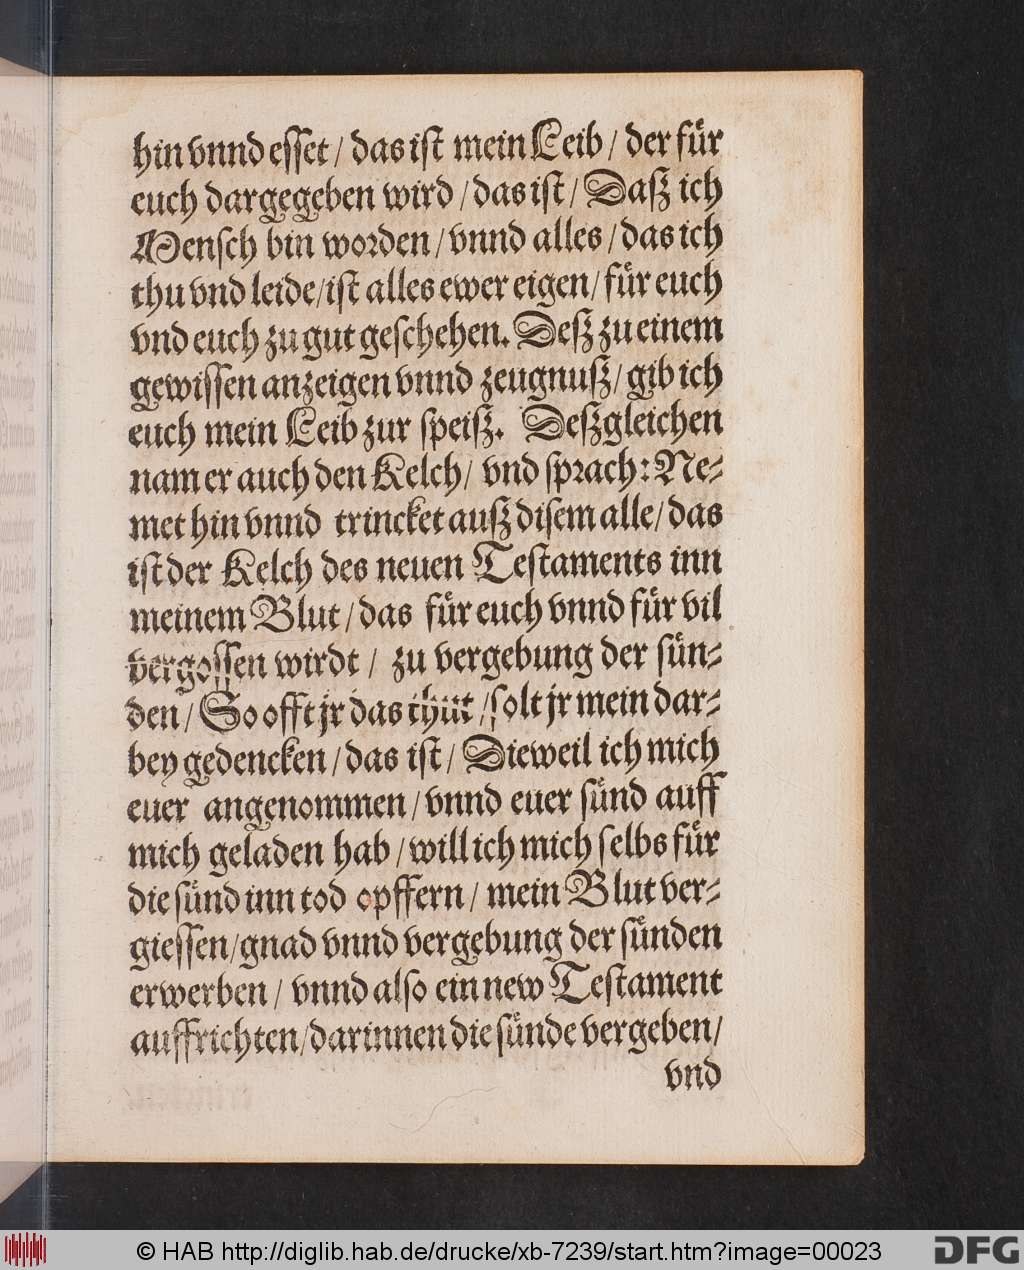 hin vnnd esset / das ist mein Leib / der für
euch dargegeben wird / das ist / Daß ich
Mensch bin worden / vnnd alles / das ich
thu vnd leide / ist alles ewer eigen / für euch
vnd euch zu gut geschehen. Deß zu einem
gewissen anzeigen vnnd zeugnuß / gib ich
euch mein Leib zur speiß. Deßgleichen
nam er auch den Kelch / vnd sprach: Ne-
met hin vnnd trincket auß disem alle / das
ist der Kelch des neuen Testaments inn
meinem Blut / das für euch vnnd für vil
vergossen wirdt / zu vergebung der sün-
den / So offt jr das thüt / solt jr mein dar-
bey gedencken / das ist / Dieweil ich mich
euer angenommen / vnnd euer sünd auff
mich geladen hab / will ich mich selbs für
die sünd inn tod opffern / mein Blut ver-
giessen / gnad vnnd vergebung der sünden
erwerben / vnnd also ein new Testament
auffrichten / darinnen die sünde vergeben /
vnd
© HAB http://diglib.hab.de/drucke/xb-7239/start.htm?image=00023
DFG